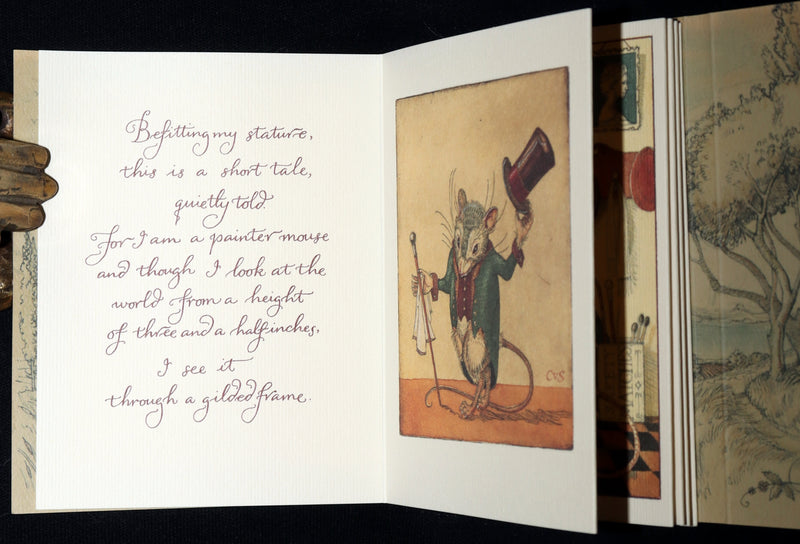 Befitting my stature,
this is a short tale,
quietly told.
For I am a painter mouse
and though I look at the
world from a height
of three and a half inches,
I see it
through a gilded frame.
CVS